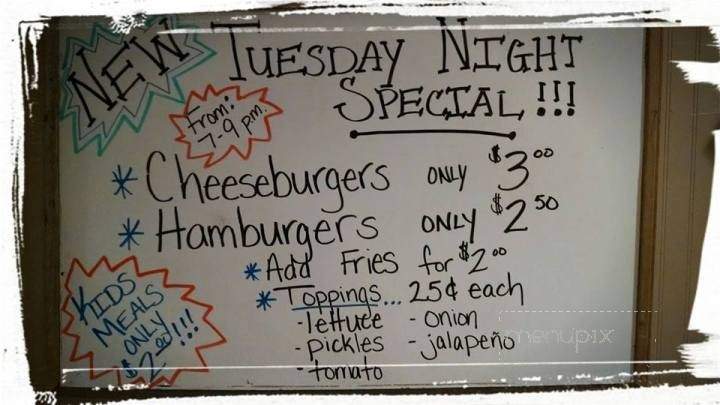 NEW TUESDAY NIGHT
SPECIAL!!!
From:
7-9 p.m.
* Cheeseburgers ONLY $3.00
* Hamburgers ONLY $2.50
* Add Fries for $2.00
* Toppings... 25¢ each
- lettuce - onion
- pickles - jalapeño
- tomato
KIDS
MEALS
ONLY
$2.00!!!
menupix